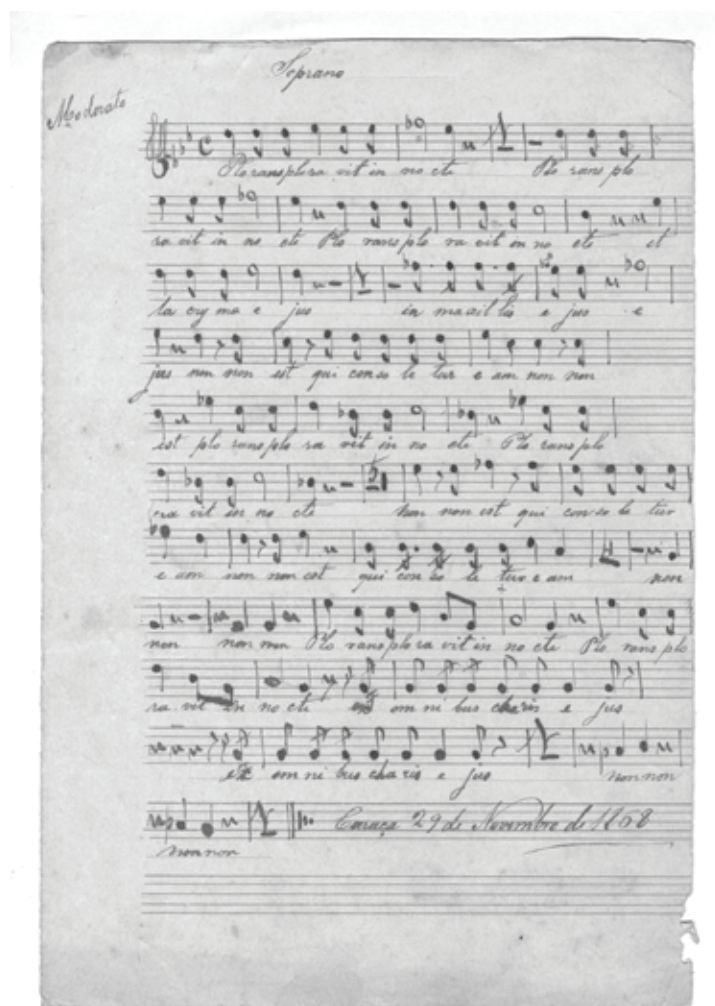 Soprano
Moderato
Plo rans plo ra vit in no cte Plo rans plo
ra vit in no cte Plo rans plo ra vit in no cte et
la cry ma e jus in maxil lis e jus e
jus non non est qui con so le tur e am non non
est plo rans plo ra vit in no cte Plo rans plo
ra vit in no cte non non est qui con so le tur
e am non non est qui con so le tur e am non
non non non Plo rans plo ra vit in no cte Plo rans plo
ra vit in no cte om ni bus charis e jus
ex om ni bus cha ris e jus non non
Caraça 29 de Novembro de 1868
non non